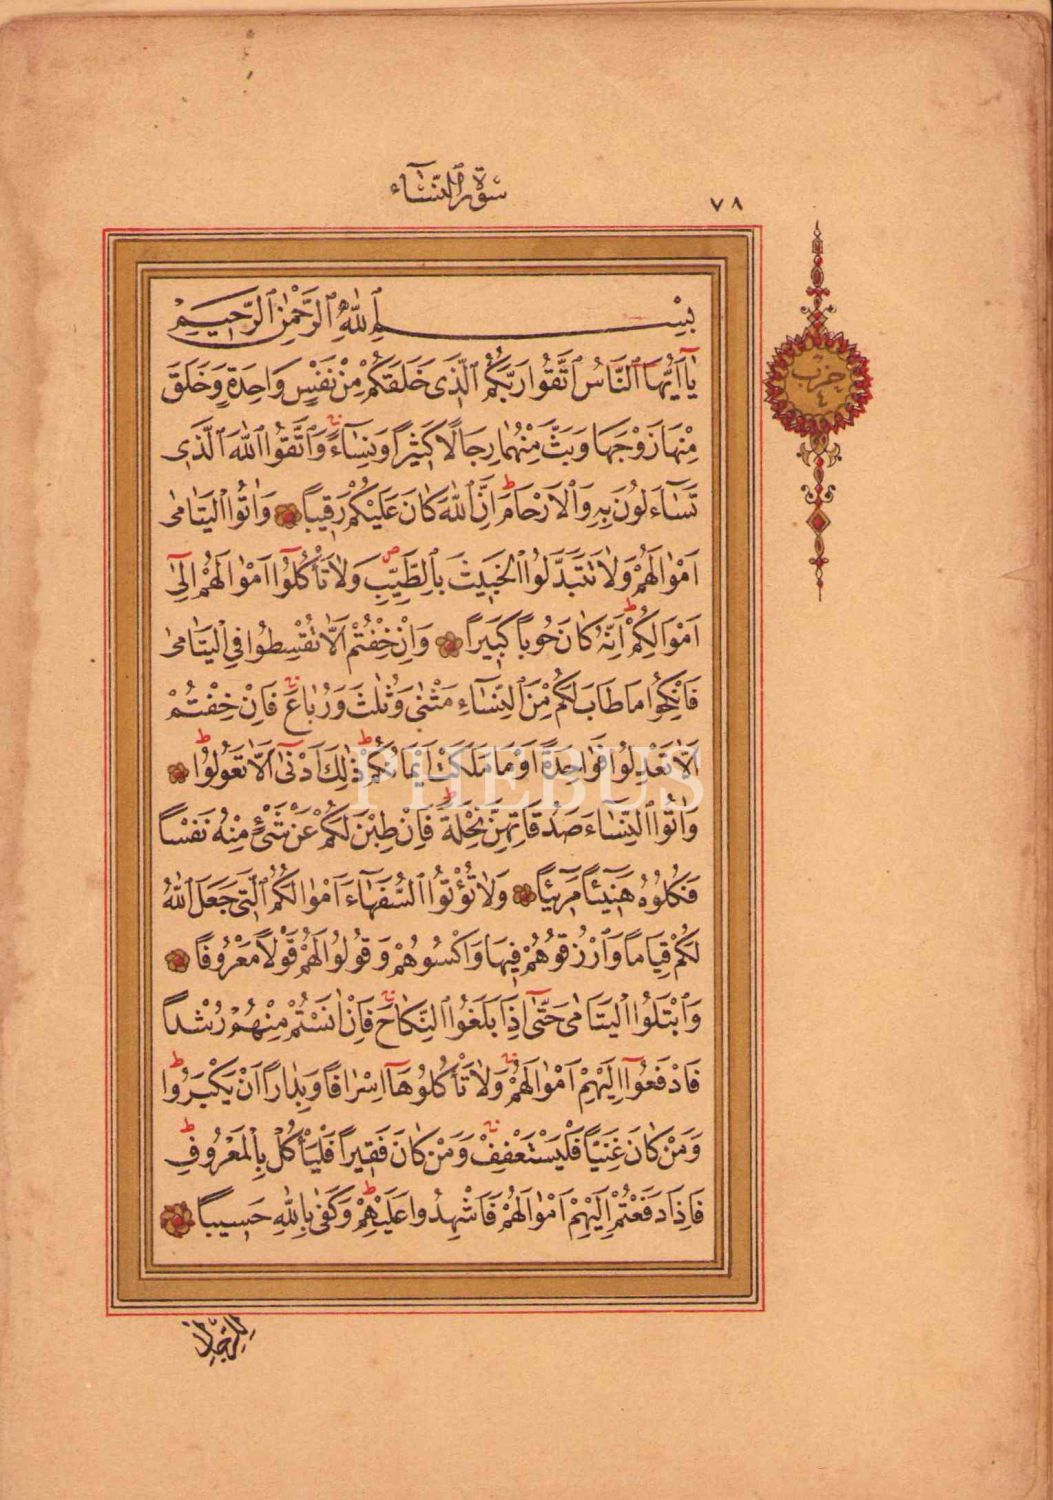 سورة النساء
٧٨
بِسْمِ ٱللّٰهِ ٱلرَّحْمٰنِ ٱلرَّحِيمِ
يَٓا اَيُّهَا ٱلنَّاسُ ٱتَّقُوا رَبَّكُمُ ٱلَّذِى خَلَقَكُمْ مِنْ نَفْسٍ وَاحِدَةٍ وَخَلَقَ
مِنْهَا زَوْجَهَا وَبَثَّ مِنْهُمَا رِجَالًا كَثِيرًا وَنِسَٓاءً وَٱتَّقُوا ٱللّٰهَ ٱلَّذِى
تَسَٓاءَلُونَ بِهِ وَٱلْاَرْحَامَ اِنَّ ٱللّٰهَ كَانَ عَلَيْكُمْ رَقِيبًا وَاٰتُوا ٱلْيَتَامٰى
اَمْوَالَهُمْ وَلَا تَتَبَدَّلُوا ٱلْخَبِيثَ بِٱلطَّيِّبِ وَلَا تَأْكُلُٓوا اَمْوَالَهُمْ اِلٰٓى
اَمْوَالِكُمْ اِنَّهُ كَانَ حُوبًا كَبِيرًا وَاِنْ خِفْتُمْ اَلَّا تُقْسِطُوا فِى ٱلْيَتَامٰى
فَٱنْكِحُوا مَا طَابَ لَكُمْ مِنَ ٱلنِّسَٓاءِ مَثْنٰى وَثُلٰثَ وَرُبَاعَ فَاِنْ خِفْتُمْ
اَلَّا تَعْدِلُوا فَوَاحِدَةً اَوْ مَا مَلَكَتْ اَيْمَانُكُمْ ذٰلِكَ اَدْنٰٓى اَلَّا تَعُولُوا
وَاٰتُوا ٱلنِّسَٓاءَ صَدُقَاتِهِنَّ نِحْلَةً فَاِنْ طِبْنَ لَكُمْ عَنْ شَىْءٍ مِنْهُ نَفْسًا
فَكُلُوهُ هَنِيٓئًا مَرِيٓئًا وَلَا تُؤْتُوا ٱلسُّفَهَٓاءَ اَمْوَالَكُمُ ٱلَّتِى جَعَلَ ٱللّٰهُ
لَكُمْ قِيَامًا وَٱرْزُقُوهُمْ فِيهَا وَٱكْسُوهُمْ وَقُولُوا لَهُمْ قَوْلًا مَعْرُوفًا
وَٱبْتَلُوا ٱلْيَتَامٰى حَتّٰٓى اِذَا بَلَغُوا ٱلنِّكَاحَ فَاِنْ اٰنَسْتُمْ مِنْهُمْ رُشْدًا
فَٱدْفَعُٓوا اِلَيْهِمْ اَمْوَالَهُمْ وَلَا تَأْكُلُوهَٓا اِسْرَافًا وَبِدَارًا اَنْ يَكْبَرُوا
وَمَنْ كَانَ غَنِيًّا فَلْيَسْتَعْفِفْ وَمَنْ كَانَ فَقِيرًا فَلْيَأْكُلْ بِٱلْمَعْرُوفِ
فَاِذَا دَفَعْتُمْ اِلَيْهِمْ اَمْوَالَهُمْ فَاَشْهِدُوا عَلَيْهِمْ وَكَفٰى بِٱللّٰهِ حَسِيبًا
حزب
٤
لِلرِّجَالِ
PHEBUS